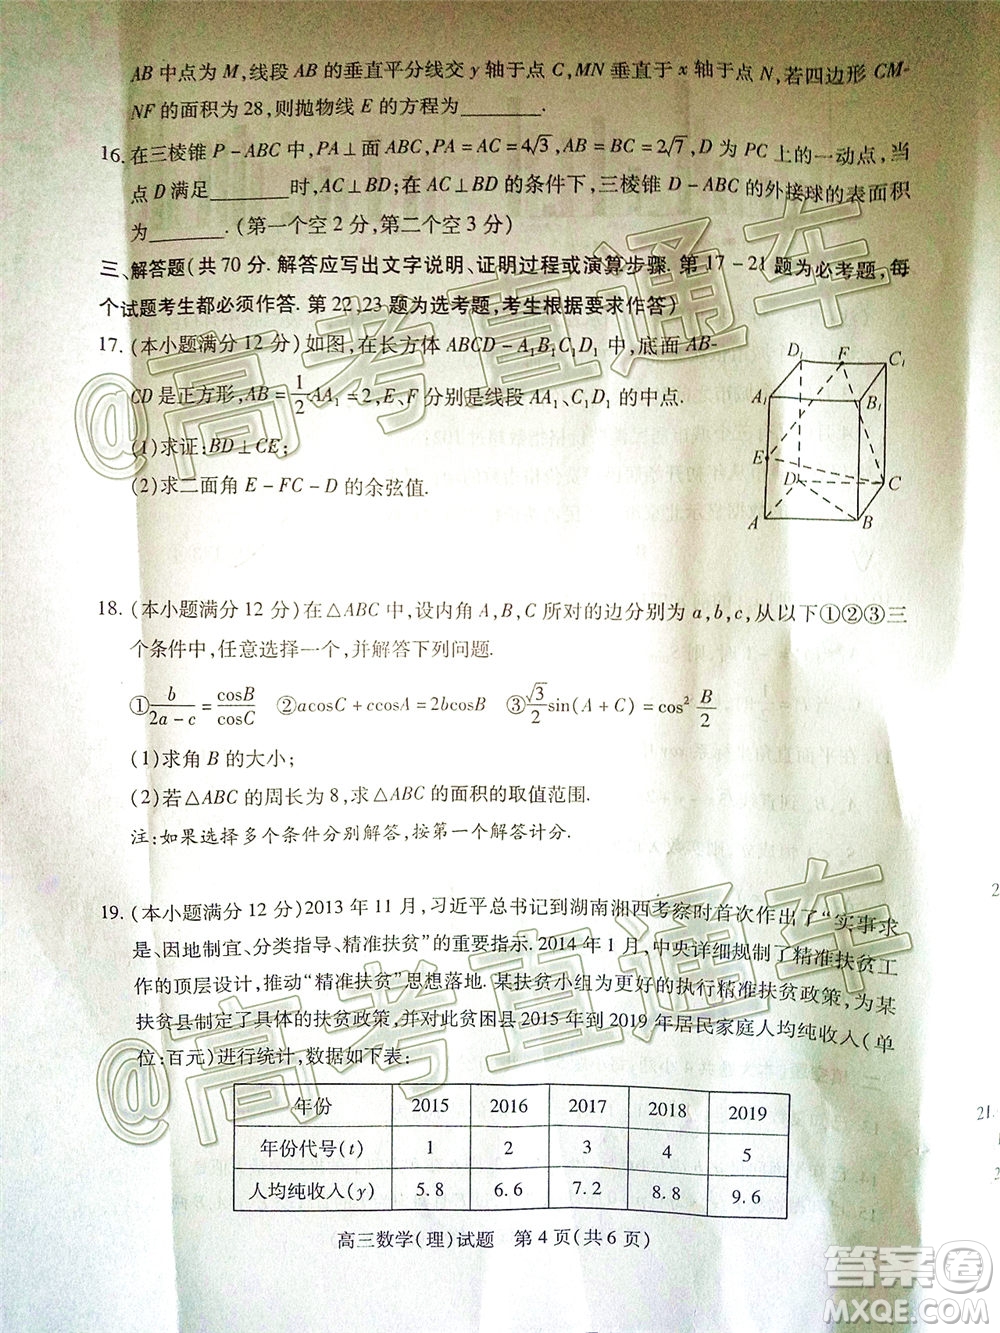 AB中点为M,线段AB的垂直平分线交y轴于点C,MN垂直于x轴于点N,若四边形CM-
NF的面积为28,则抛物线E的方程为________.
16.在三棱锥P-ABC中,PA⊥面ABC,PA=AC=4√3,AB=BC=2√7,D为PC上的一动点,当
点D满足________时,AC⊥BD;在AC⊥BD的条件下,三棱锥D-ABC的外接球的表面积
为________.(第一个空2分,第二个空3分)
三、解答题(共70分.解答应写出文字说明、证明过程或演算步骤.第17-21题为必考题,每
个试题考生都必须作答.第22,23题为选考题,考生根据要求作答)
17.(本小题满分12分)如图,在长方体ABCD-A₁B₁C₁D₁中,底面AB-
CD是正方形,AB=1/2 AA₁=2,E、F分别是线段AA₁、C₁D₁的中点.
(1)求证:BD⊥CE;
(2)求二面角E-FC-D的余弦值.
D₁ F C₁
A₁ B₁
E
D C
A B
18.(本小题满分12分)在△ABC中,设内角A,B,C所对的边分别为a,b,c,从以下①②③三
个条件中,任意选择一个,并解答下列问题.
①b/(2a-c)=cosB/cosC ②acosC+ccosA=2bcosB ③√3/2 sin(A+C)=cos² B/2
(1)求角B的大小;
(2)若△ABC的周长为8,求△ABC的面积的取值范围.
注:如果选择多个条件分别解答,按第一个解答计分.
19.(本小题满分12分)2013年11月,习近平总书记到湖南湘西考察时首次作出了“实事求
是、因地制宜、分类指导、精准扶贫”的重要指示.2014年1月,中央详细规制了精准扶贫工
作的顶层设计,推动“精准扶贫”思想落地.某扶贫小组为更好的执行精准扶贫政策,为某
扶贫县制定了具体的扶贫政策,并对此贫困县2015年到2019年居民家庭人均纯收入(单
位:百元)进行统计,数据如下表:
年份 2015 2016 2017 2018 2019
年份代号(t) 1 2 3 4 5
人均纯收入(y) 5.8 6.6 7.2 8.8 9.6
高三数学(理)试题 第4页(共6页)
@高考直通车
@高考直通车
答案圈
MXQE.COM